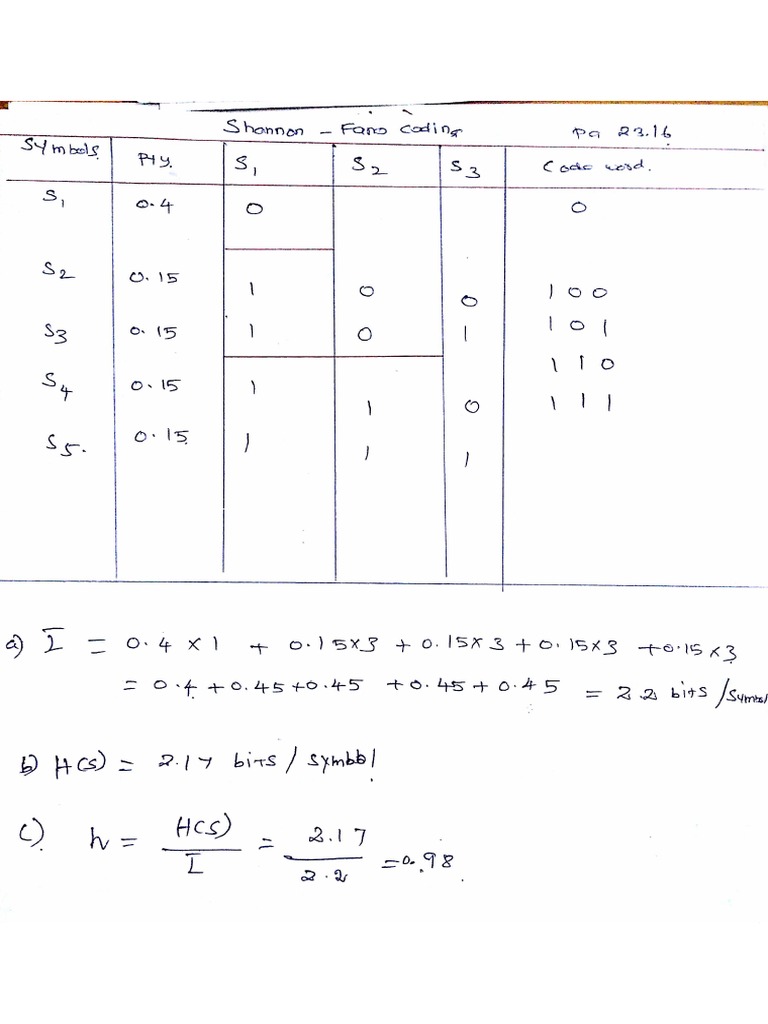 Shannon - Fano Coding Pg 23.16
Symbols Pty. S1 S2 S3 Code word.
S1 0.4 0 0
S2 0.15 1 0 0 100
S3 0.15 1 0 1 101
S4 0.15 1 1 0 110
S5. 0.15 1 1 1 111
a) L̄ = 0.4 x 1 + 0.15x3 + 0.15x3 + 0.15x3 + 0.15x3
= 0.4 + 0.45 + 0.45 + 0.45 + 0.45 = 2.2 bits / Symbol
b) H(s) = 2.17 bits / symbbl
c). h = H(s) / L̄ = 2.17 / 2.2 = 0.98.